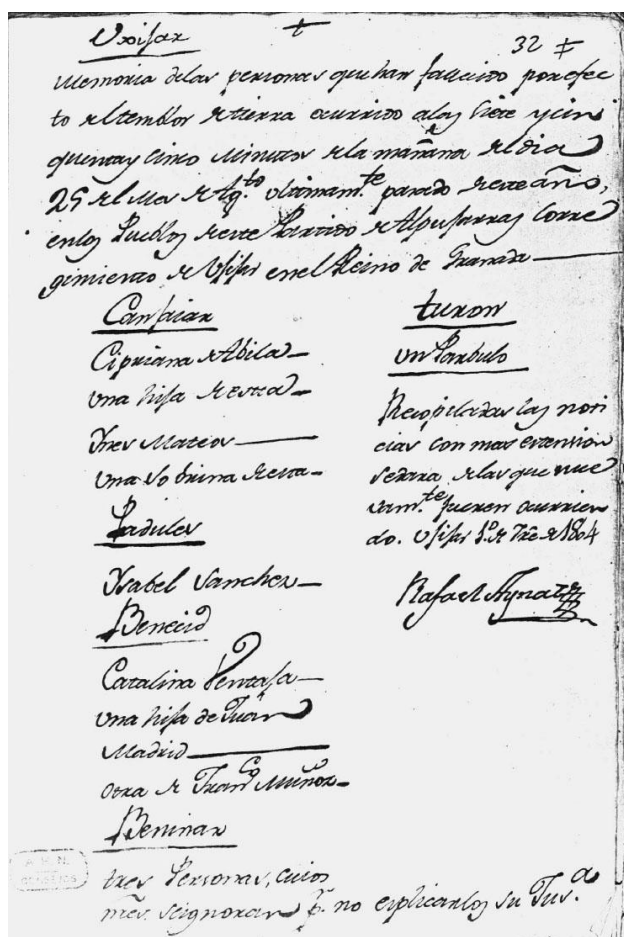 Uxijar
32
Memoria delas personas que han fallecido por efec
to del temblor de tierra ocurrido alas siete y cin
quenta y cinco minutos de la mañana del dia
25 del Mes de Agto. ultimamte. pasado de este año,
en los Pueblos de este Partido de Alpujarras Corre
gimiento de Ujijar en el Reino de Granada
Canjaiar
Cipriana de Abila
una hija de esta
Ines Mateos
una sobrina de esta
Padules
Ysabel Sanchez
Benecid
Catalina Ventaja
una hija de Juan
Madrid
otra de Franco. Muñoz
Beninar
tres Personas, cuios
nres. se ignoran pr. no explicarlos su Jusa.
turon
un Parbulo
Recopiladas las noti
cias con mas extension
se dara de las que nue
vamte. fueren ocurrien
do. Ujijar 1o. de 7re. de 1804
Rafael